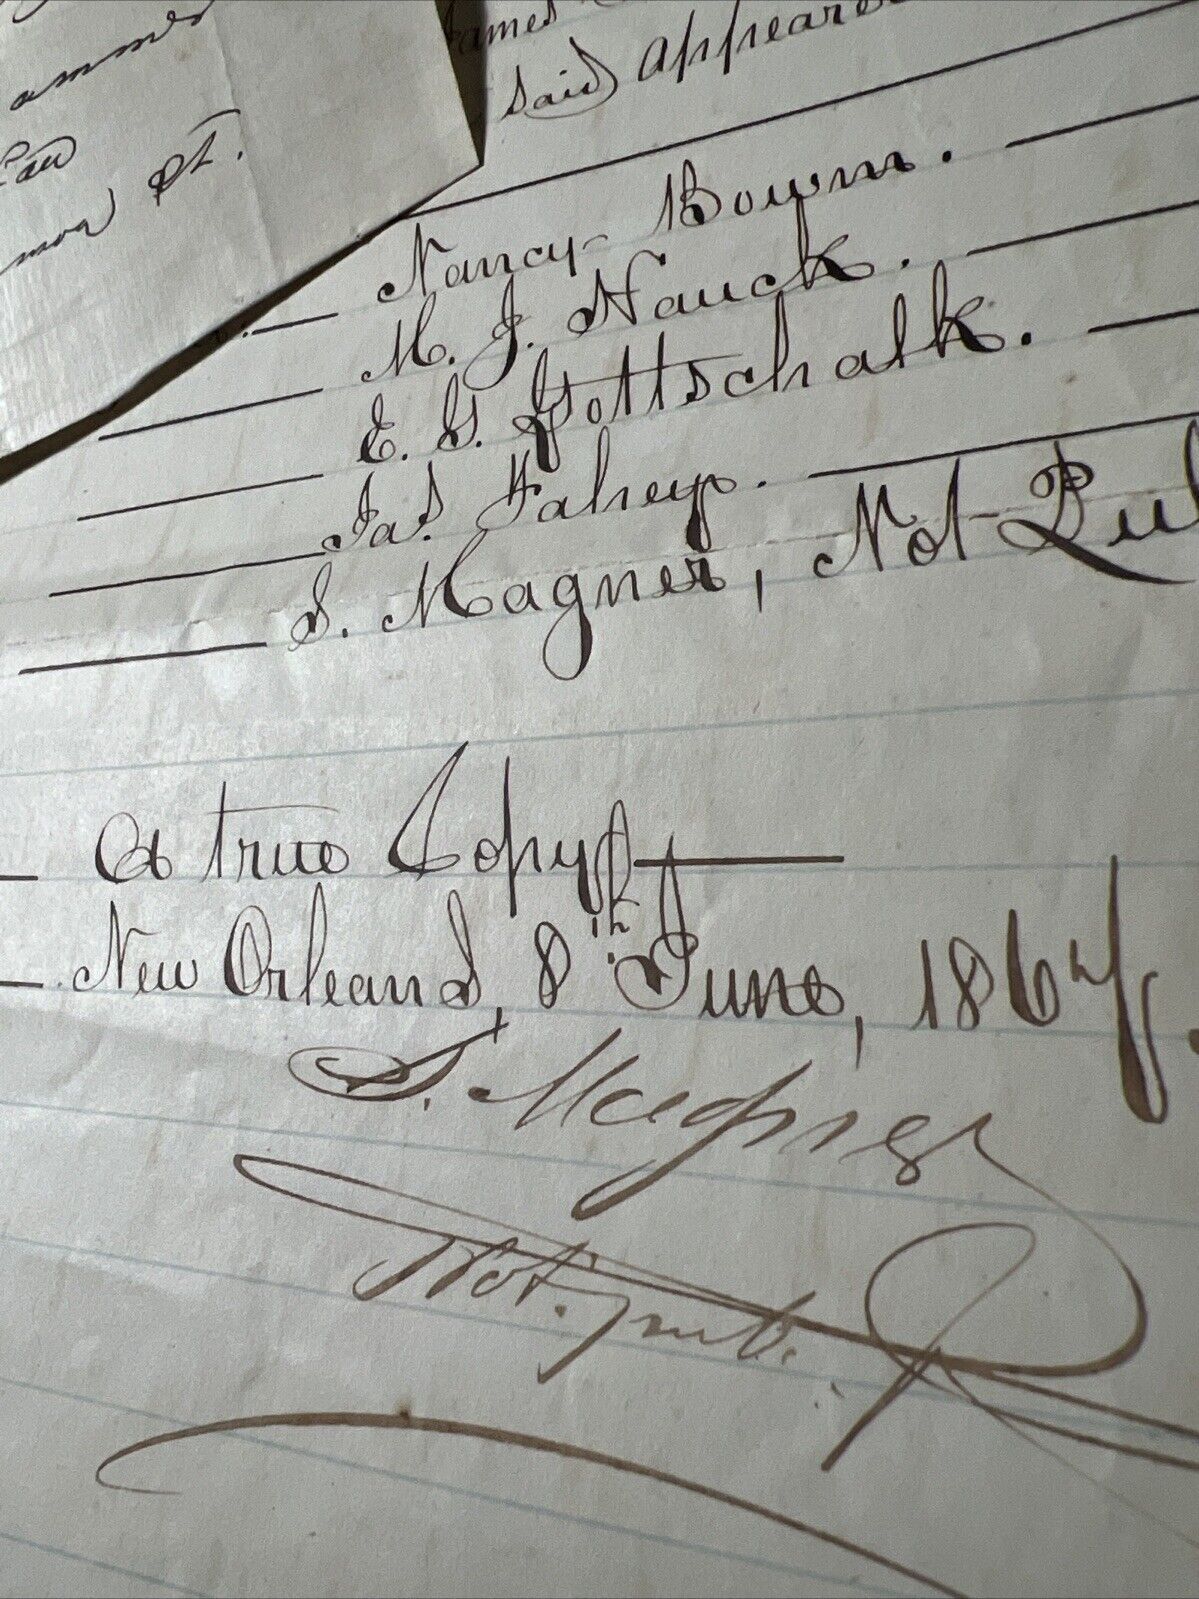 said appeare
St.
Nancy Bown.
M. J. Nauck.
E. G. Gottschalk.
Jas. Fahey.
S. Magner, Not Pub
A true Copy
New Orleans, 8th June, 1864.
S. Magner
Not. Pub.